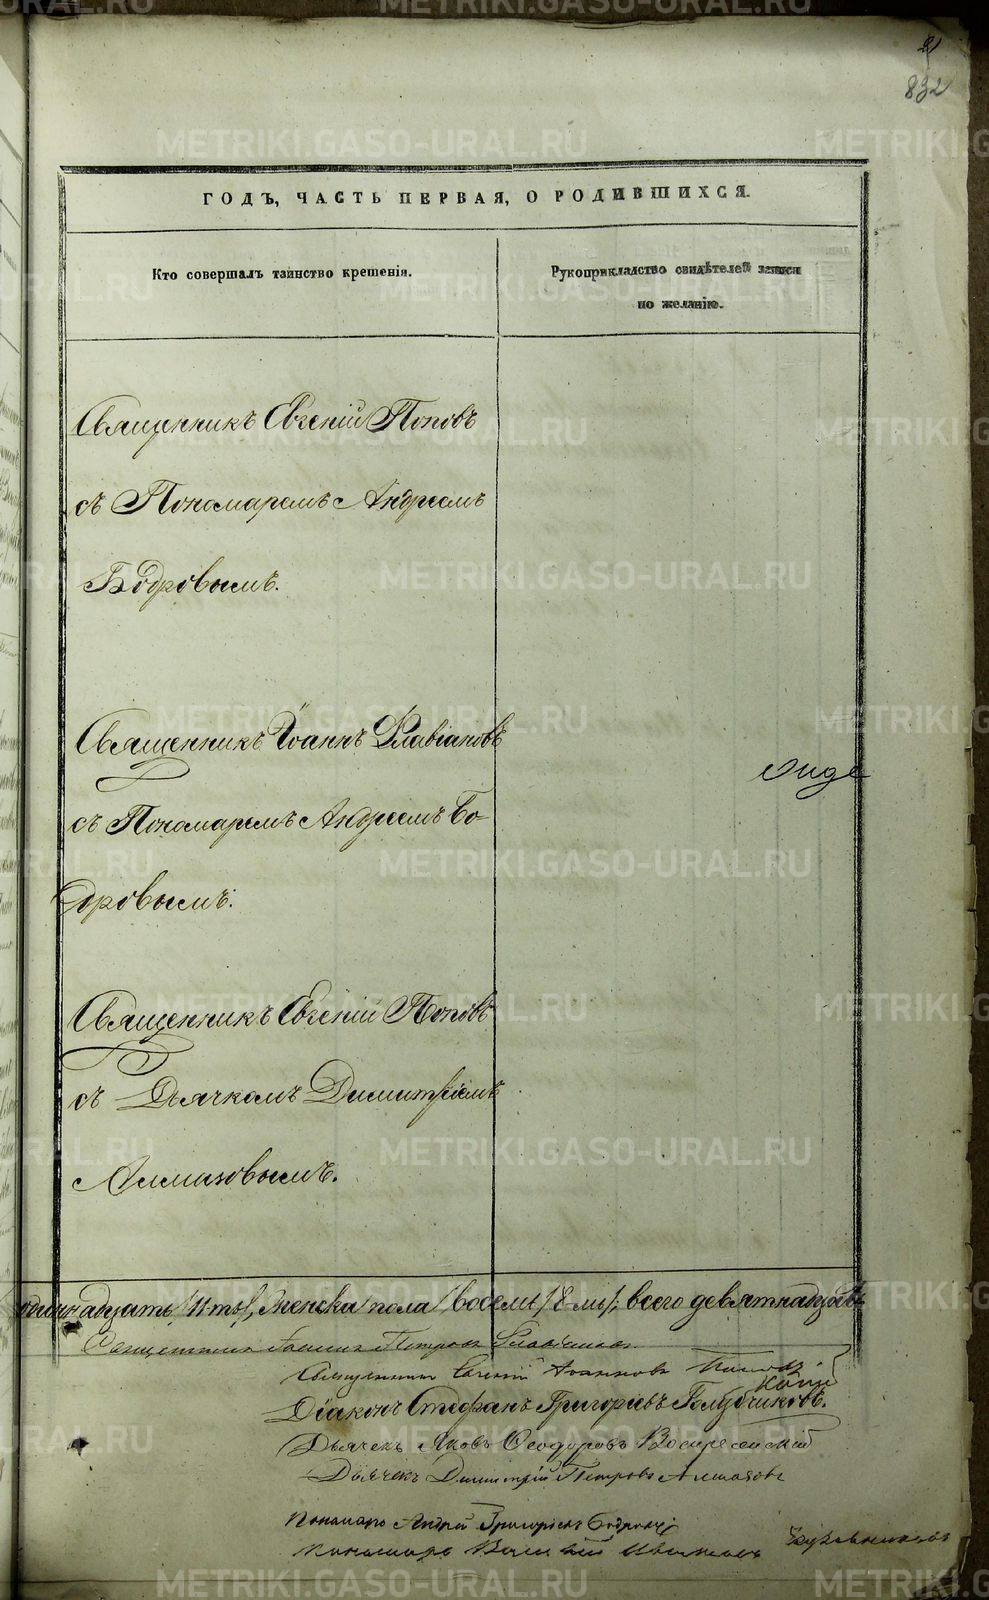 832
ГОДЪ, ЧАСТЬ ПЕРВАЯ, О РОДИВШИХСЯ.
Кто совершалъ таинство крещенія.
Рукоприкладство свидѣтелей записи
по желанію.
Священникъ Евгеній Поповъ
съ Пономаремъ Андреемъ
Бодровымъ.
Священникъ Іоаннъ Флавіановъ
съ Пономаремъ Андреемъ Бо-
дровымъ.
Священникъ Евгеній Поповъ
съ Дьячкомъ Димитріемъ
Алмазовымъ.
одиннадцать /11-ть/, женска пола /восемь/ 8-мь/; всего девятнадцать
Священникъ Іоаннъ Петровъ
Священникъ Евгеній Іоанновъ Поповъ
Діаконъ Стефанъ Григорьевъ Голубчиковъ.
Дьячекъ Яковъ Ѳеодоровъ Воскресенскій
Дьячекъ Димитрій Петровъ Алмазовъ
Пономарь Андрей Григорьевъ Бодровъ
Пономарь Василій
METRIKI.GASO-URAL.RU